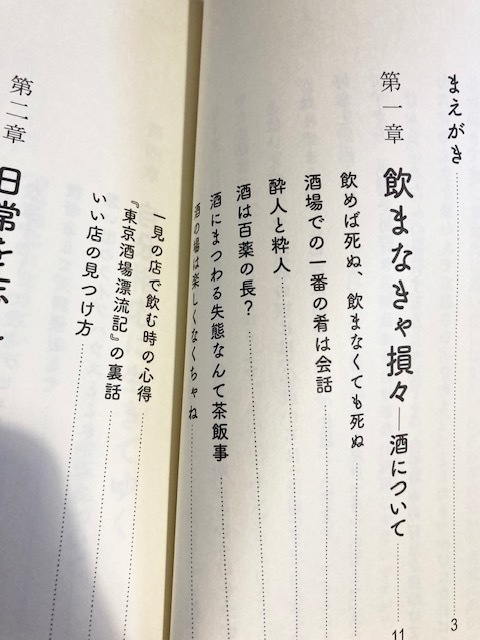 まえがき 3
第一章 飲まなきゃ損々―酒について 11
飲めば死ぬ、飲まなくても死ぬ
酒場での一番の肴は会話
酔人と粋人
酒は百薬の長?
酒にまつわる失態なんて茶飯事
酒の場は楽しくなくちゃね
一見の店で飲む時の心得
『東京酒場漂流記』の裏話
いい店の見つけ方
第二章 日常を忘